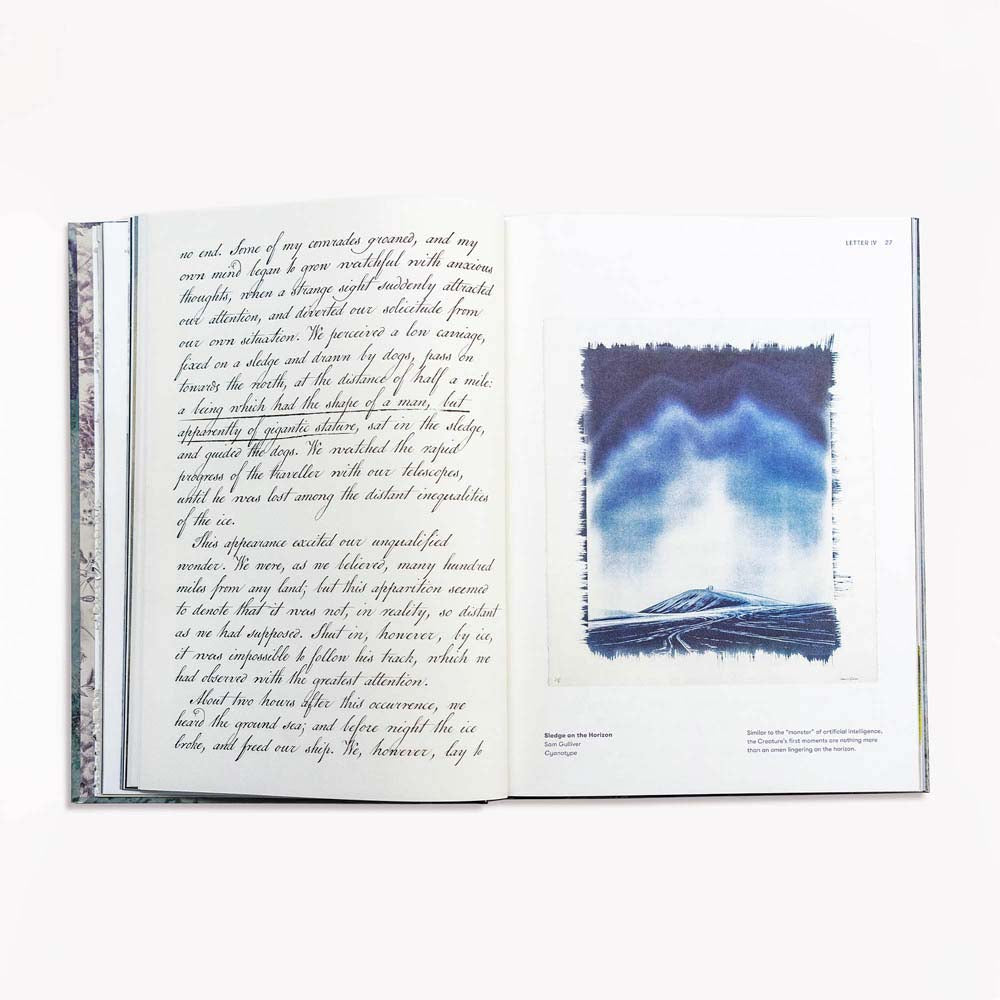 no end. Some of my comrades groaned, and my
own mind began to grow watchful with anxious
thoughts, when a strange sight suddenly attracted
our attention, and diverted our solicitude from
our own situation. We perceived a low carriage,
fixed on a sledge and drawn by dogs, pass on
towards the north, at the distance of half a mile:
a being which had the shape of a man, but
apparently of gigantic stature, sat in the sledge,
and guided the dogs. We watched the rapid
progress of the traveller with our telescopes,
until he was lost among the distant inequalities
of the ice.
This appearance excited our unqualified
wonder. We were, as we believed, many hundred
miles from any land; but this apparition seemed
to denote that it was not, in reality, so distant
as we had supposed. Shut in, however, by ice,
it was impossible to follow his track, which we
had observed with the greatest attention.
About two hours after this occurrence, we
heard the ground sea; and before night the ice
broke, and freed our ship. We, however, lay to
LETTER IV 27
Sledge on the Horizon
Sam Gulliver
Cyanotype
Similar to the "monster" of artificial intelligence,
the Creature's first moments are nothing more
than an omen lingering on the horizon.